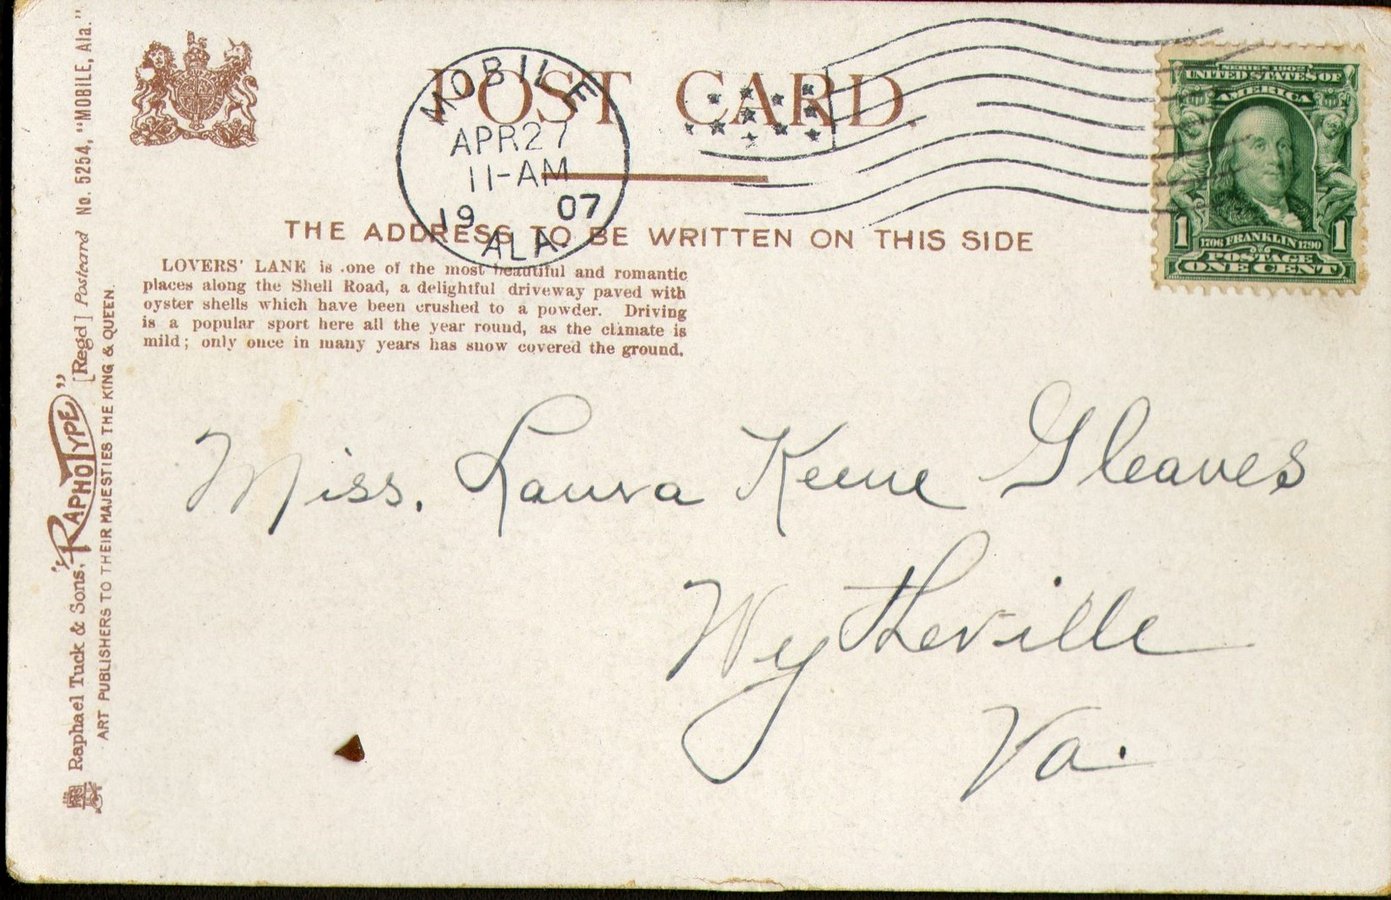 POST CARD.
MOBILE
APR 27
11-AM
19 07
ALA.
SERIES 1902
UNITED STATES OF
AMERICA
1 1706 FRANKLIN 1790 1
POSTAGE
ONE CENT
THE ADDRESS TO BE WRITTEN ON THIS SIDE
LOVERS' LANE is one of the most beautiful and romantic
places along the Shell Road, a delightful driveway paved with
oyster shells which have been crushed to a powder. Driving
is a popular sport here all the year round, as the climate is
mild; only once in many years has snow covered the ground.
Miss. Laura Keene Gleaves
Wytheville
Va.
Raphael Tuck & Sons, "RAPHOTYPE" [Regd] Postcard No. 5254, "MOBILE, Ala."
ART PUBLISHERS TO THEIR MAJESTIES THE KING & QUEEN.